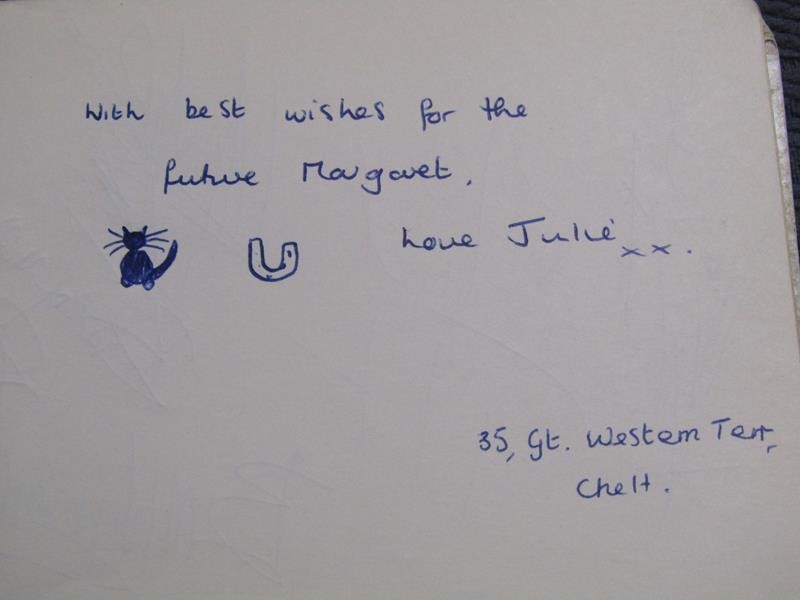 With best wishes for the
future Margaret.
Love Julie xx.
35, Gt. Western Terr,
Chelt.